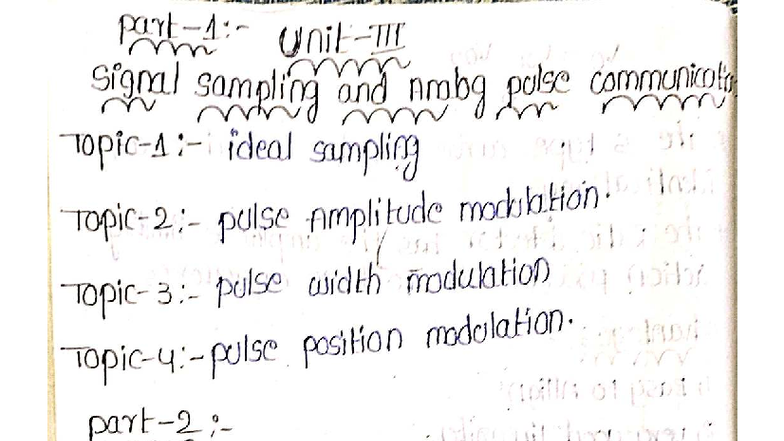 part-1:- Unit-III
Signal sampling and Analog pulse communicati
Topic-1:- ideal sampling
Topic-2:- pulse Amplitude modulation.
Topic-3:- pulse width modulation
Topic-4:- pulse position modulation.
part-2:-